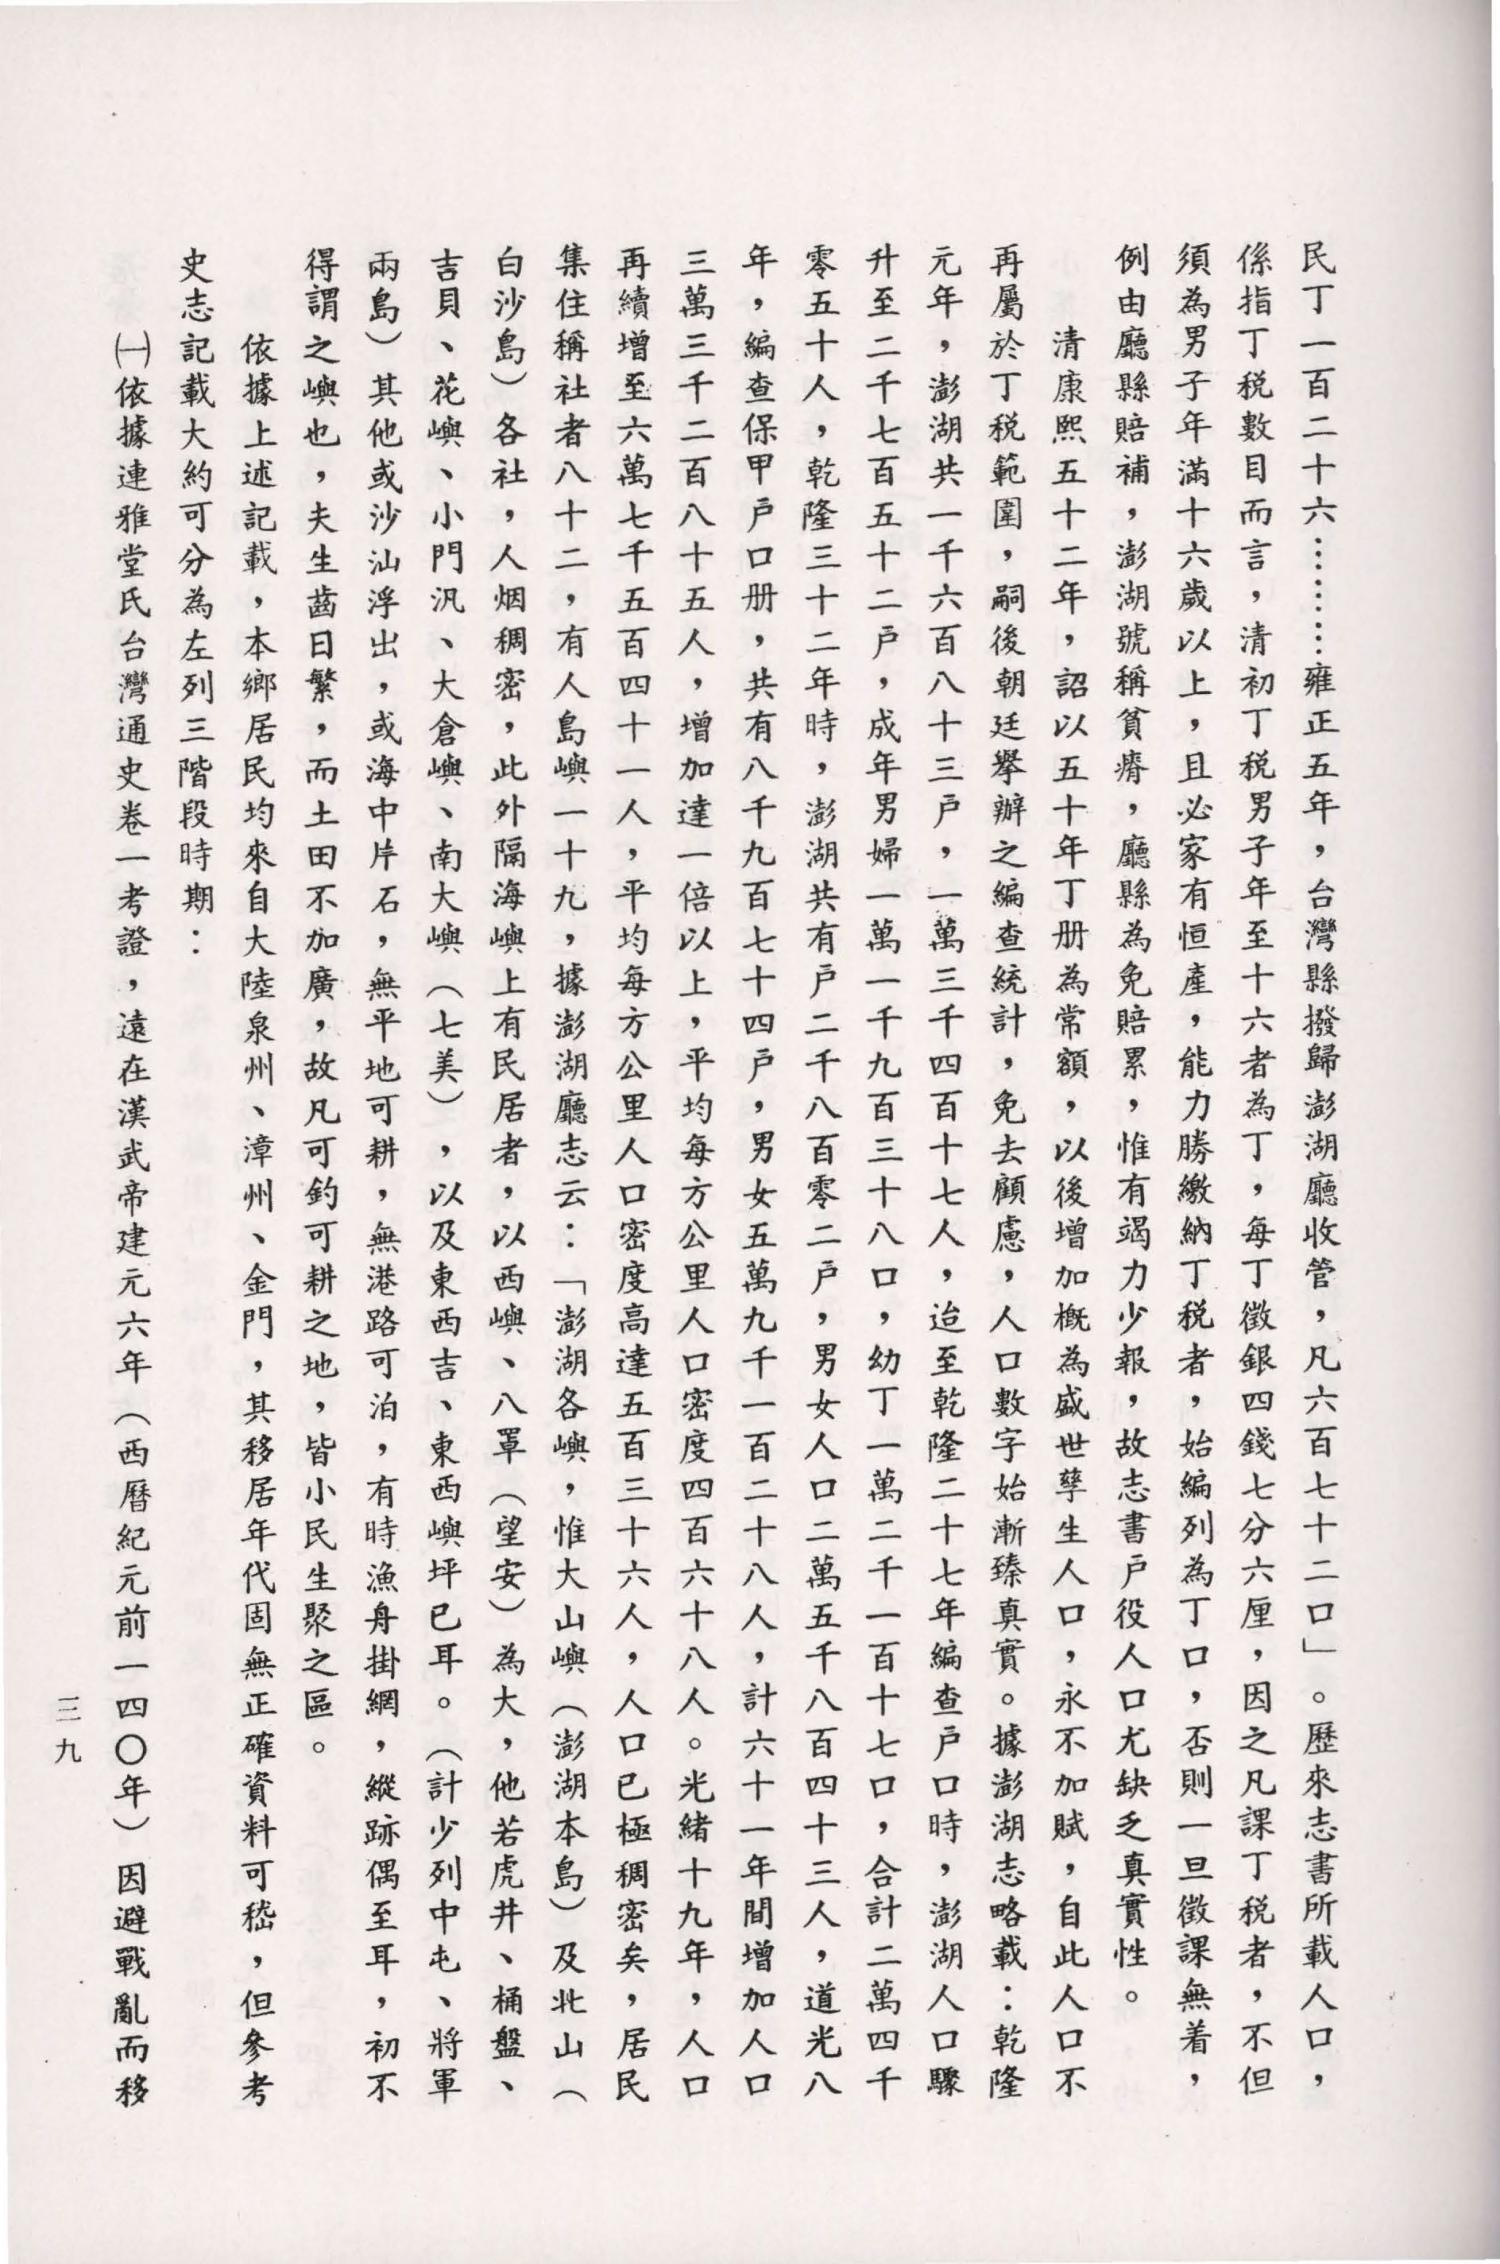 民丁一百二十六………雍正五年，台灣縣撥歸澎湖廳收管，凡六百七十二口」。歷來志書所載人口，
係指丁稅數目而言，清初丁稅男子年至十六者為丁，每丁徵銀四錢七分六厘，因之凡課丁稅者，不但
須為男子年滿十六歲以上，且必家有恒產，能力勝繳納丁稅者，始編列為丁口，否則一旦徵課無着，
例由廳縣賠補，澎湖號稱貧瘠，廳縣為免賠累，惟有竭力少報，故志書戶役人口尤缺乏真實性。
清康熙五十二年，詔以五十年丁册為常額，以後增加概為盛世孳生人口，永不加賦，自此人口不
再屬於丁稅範圍，嗣後朝廷舉辦之編查統計，免去顧慮，人口數字始漸臻真實。據澎湖志略載：乾隆
元年，澎湖共一千六百八十三戶，一萬三千四百十七人，迨至乾隆二十七年編查戶口時，澎湖人口驟
升至二千七百五十二戶，成年男婦一萬一千九百三十八口，幼丁一萬二千一百十七口，合計二萬四千
零五十人，乾隆三十二年時，澎湖共有戶二千八百零二戶，男女人口二萬五千八百四十三人，道光八
年，編查保甲戶口册，共有八千九百七十四戶，男女五萬九千一百二十八人，計六十一年間增加人口
三萬三千二百八十五人，增加達一倍以上，平均每方公里人口密度四百六十八人。光緒十九年，人口
再續增至六萬七千五百四十一人，平均每方公里人口密度高達五百三十六人，人口已極稠密矣，居民
集住稱社者八十二，有人島嶼一十九，據澎湖廳志云：「澎湖各嶼，惟大山嶼（澎湖本島）及北山（
白沙島）各社，人烟稠密，此外隔海嶼上有民居者，以西嶼、八罩（望安）為大，他若虎井、桶盤、
吉貝、花嶼、小門汎、大倉嶼、南大嶼（七美），以及東西吉、東西嶼坪已耳。（計少列中屯、將軍
兩島）其他或沙汕浮出，或海中片石，無平地可耕，無港路可泊，有時漁舟掛網，縱跡偶至耳，初不
得謂之嶼也，夫生齒日繁，而土田不加廣，故凡可釣可耕之地，皆小民生聚之區。
依據上述記載，本鄉居民均來自大陸泉州、漳州、金門，其移居年代固無正確資料可嵇，但參考
史志記載大約可分為左列三階段時期：
㈠依據連雅堂氏台灣通史卷一考證，遠在漢武帝建元六年（西曆紀元前一四〇年）因避戰亂而移
三九